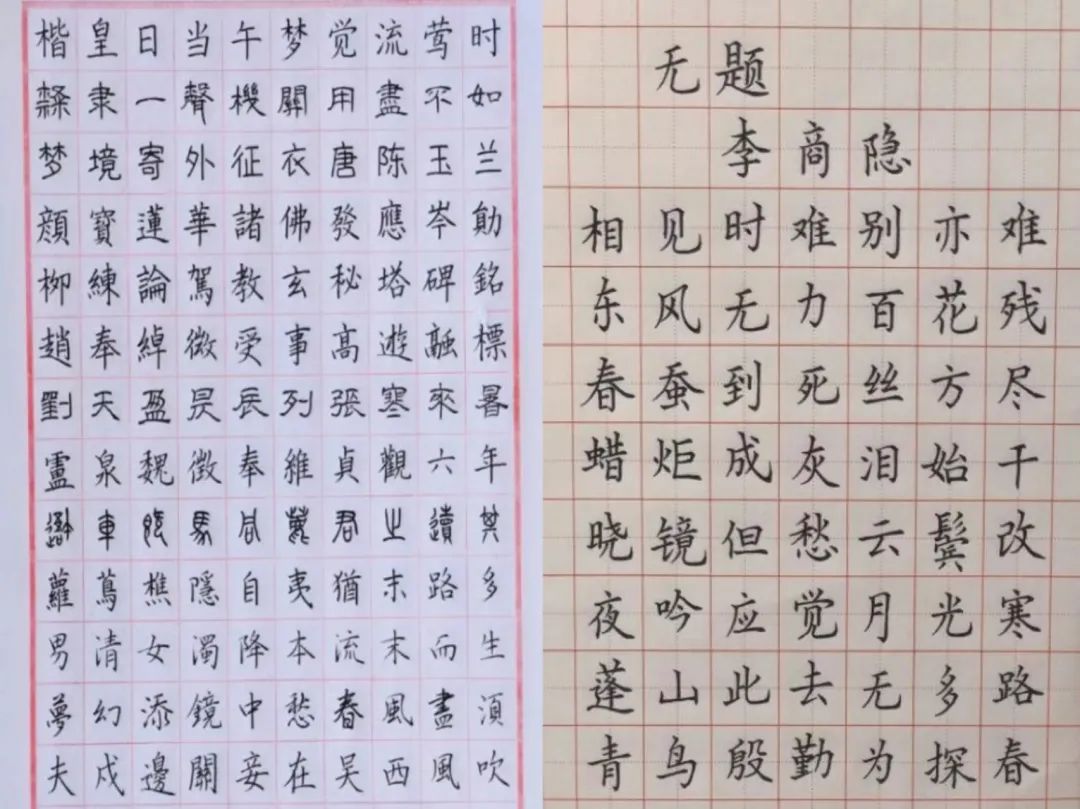 楷皇日当午梦觉流莺时
隸隶一聲機關用盡不如
梦境寄外征衣唐陈玉兰
顏寶蓮華諸佛發應岑勛
柳練論駕教玄秘塔碑銘
趙奉綽微受事高遊融標
劉天盈昃辰列張寒來暑
靈泉魏徵奉維貞觀六年
車馬君之其
蘿蔦樵隱自夷猶末路多
男清女濁降本流末而生
夢幻添鏡中愁春風盡須
夫戍邊關妾在吴西風吹
无题
李商隐
相见时难别亦难
东风无力百花残
春蚕到死丝方尽
蜡炬成灰泪始干
晓镜但愁云鬓改
夜吟应觉月光寒
蓬山此去无多路
青鸟殷勤为探春